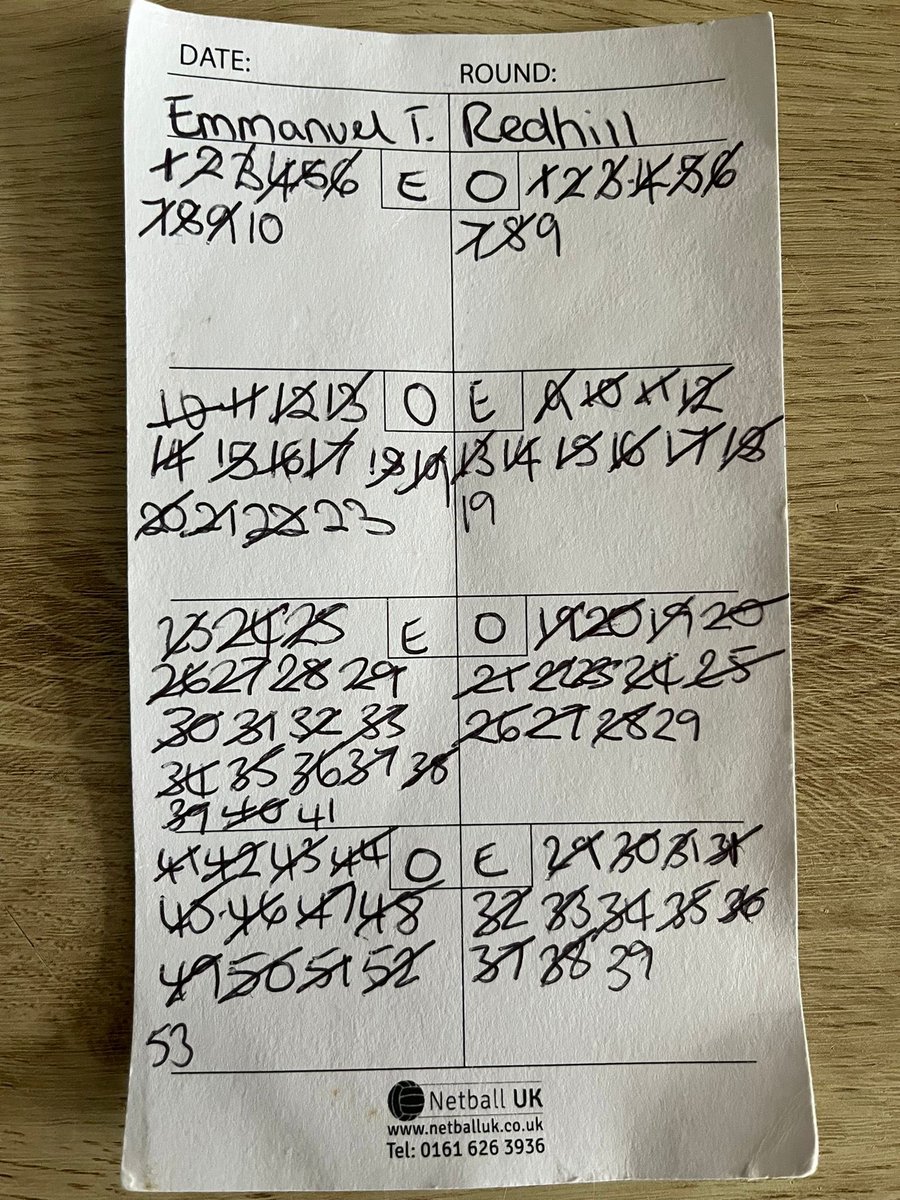 DATE: ROUND:
Emmanuel T. Redhill
1 2 3 4 5 6 E O 1 2 3 4 5 6
7 8 9 10 7 8 9
10 11 12 13 O E 9 10 11 12
14 15 16 17 18 19 13 14 15 16 17 18
20 21 22 23 19
23 24 25 E O 19 20 19 20
26 27 28 29 21 22 23 24 25
30 31 32 33 26 27 28 29
34 35 36 37 38
39 40 41
41 42 43 44 O E 29 30 31 31
45 46 47 48 32 33 34 35 36
49 50 51 52 37 38 39
53
Netball UK
www.netballuk.co.uk
Tel: 0161 626 3936